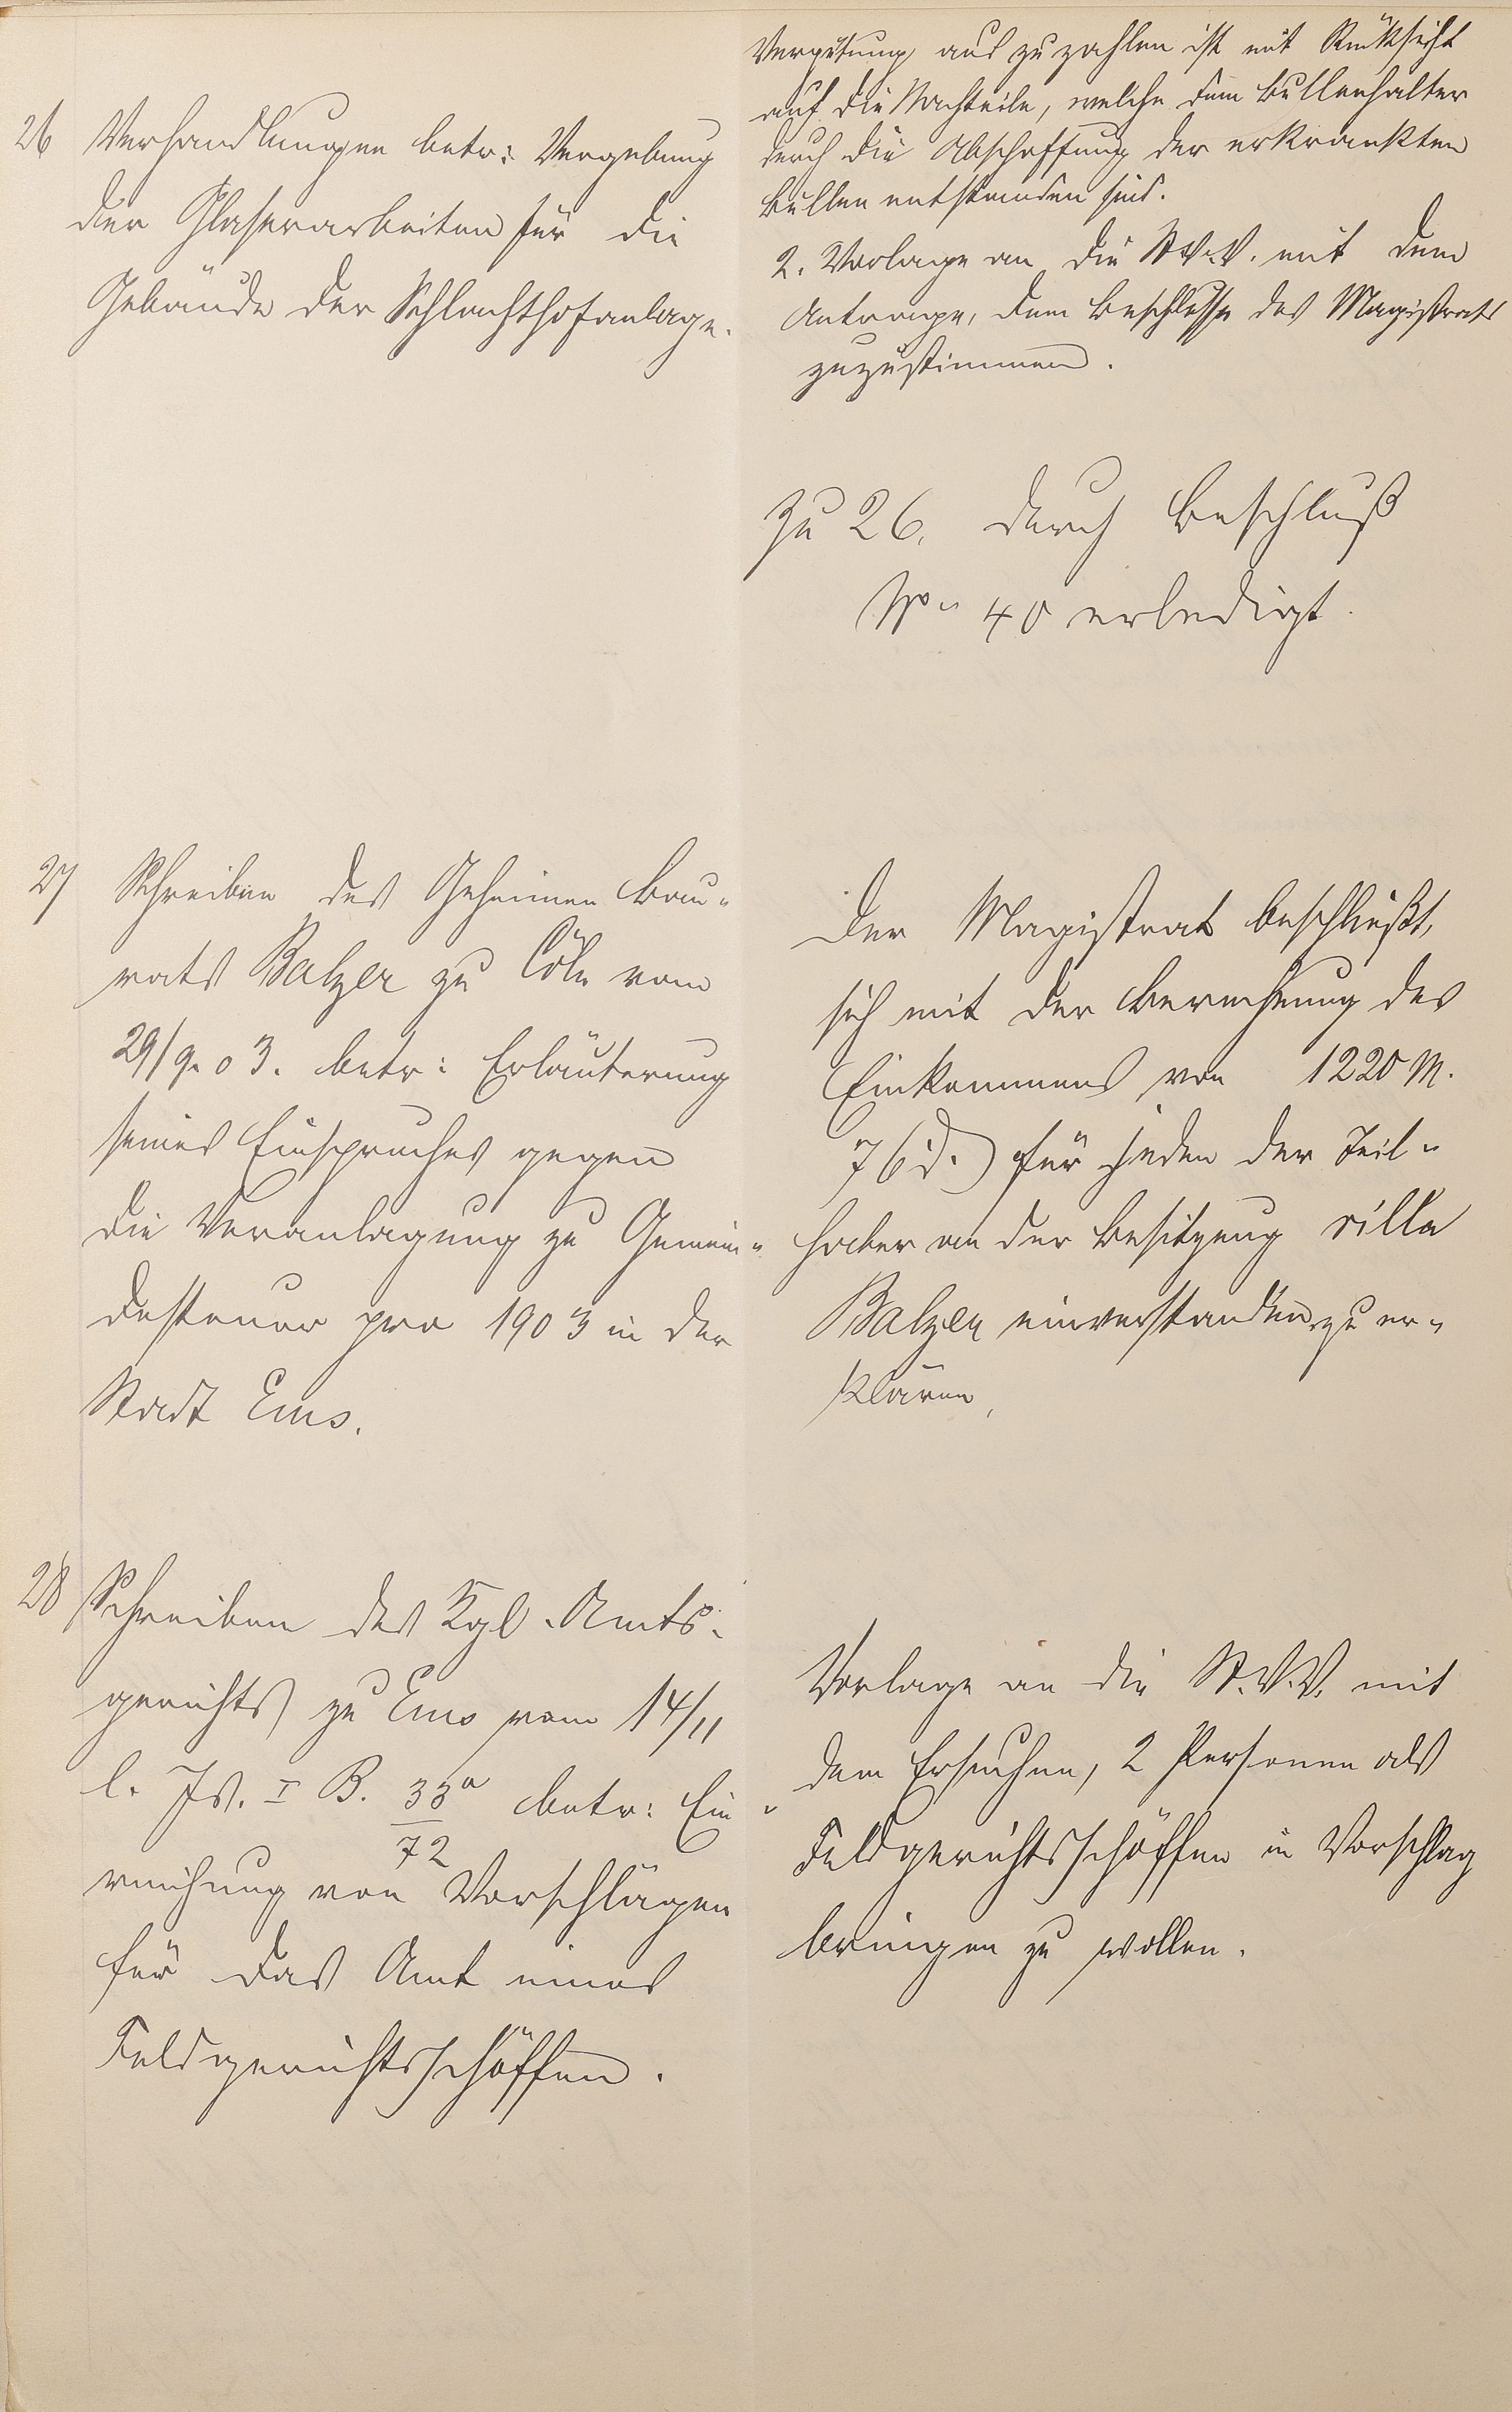 Vergütung aus zu zahlen ist mit Rücksicht
auf die Nachteile, welche dem Bullenhalter
durch die Abschaffung der erkrankten
Bullen entstanden sind.
2. Vorlage an die St.V.V. mit dem
Antrage, dem Beschlusse des Magistrats
zuzustimmen.
26 Verhandlungen betr: Vergebung
der Glaserarbeiten für die
Gebäude der Schlachthofanlage.
Zu 26. durch Beschluß
No 40 erledigt.
27 Schreiben des Geheimen Bau-
rats Balzer zu Cöln vom
29/9. 03. betr: Erläuterung
seines Einspruches gegen
die Veranlagung zu Gemein-
desteuer pro 1903 in der
Stadt Ems.
Der Magistrat beschließt,
sich mit der Berechnung des
Einkommens von 1220 M.
für jeden der Teil-
haber an der Besitzung villa
Balzer einverstanden zu er-
klären.
28 Schreiben des Kgl. Amts-
gerichts zu Ems vom 14/11
l. Js. I B. 33a/72 betr: Ein-
reichung von Vorschlägen
für das Amt eines
Feldgerichtsschöffen.
Vorlage an die St.V.V. mit
dem Ersuchen, 2 Personen als
Feldgerichtsschöffen in Vorschlag
bringen zu wollen.